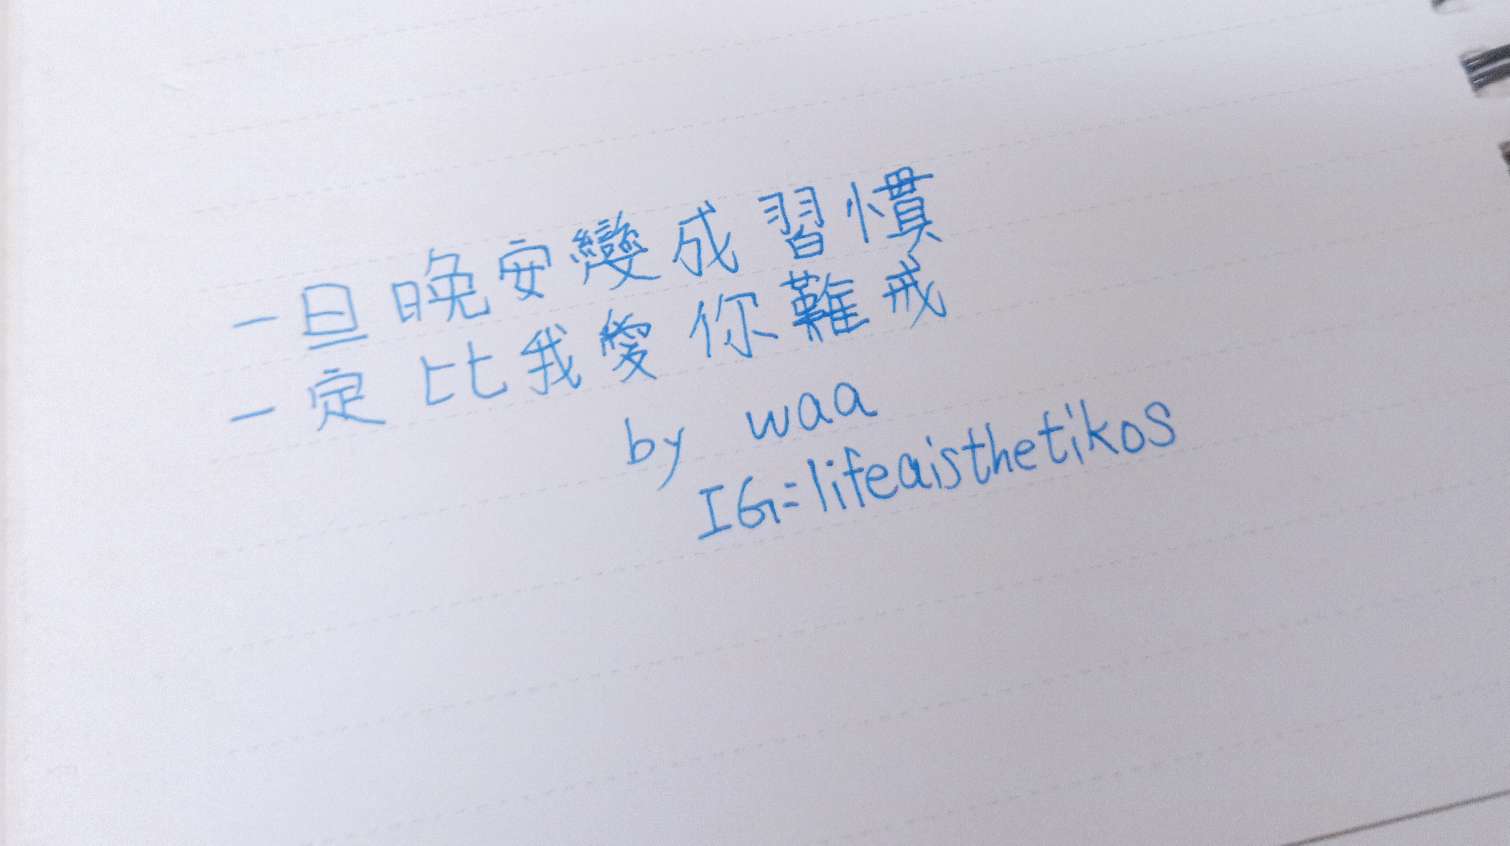 一旦晚安變成習慣
一定比我愛你難戒
by waa
IG=lifeaisthetikos